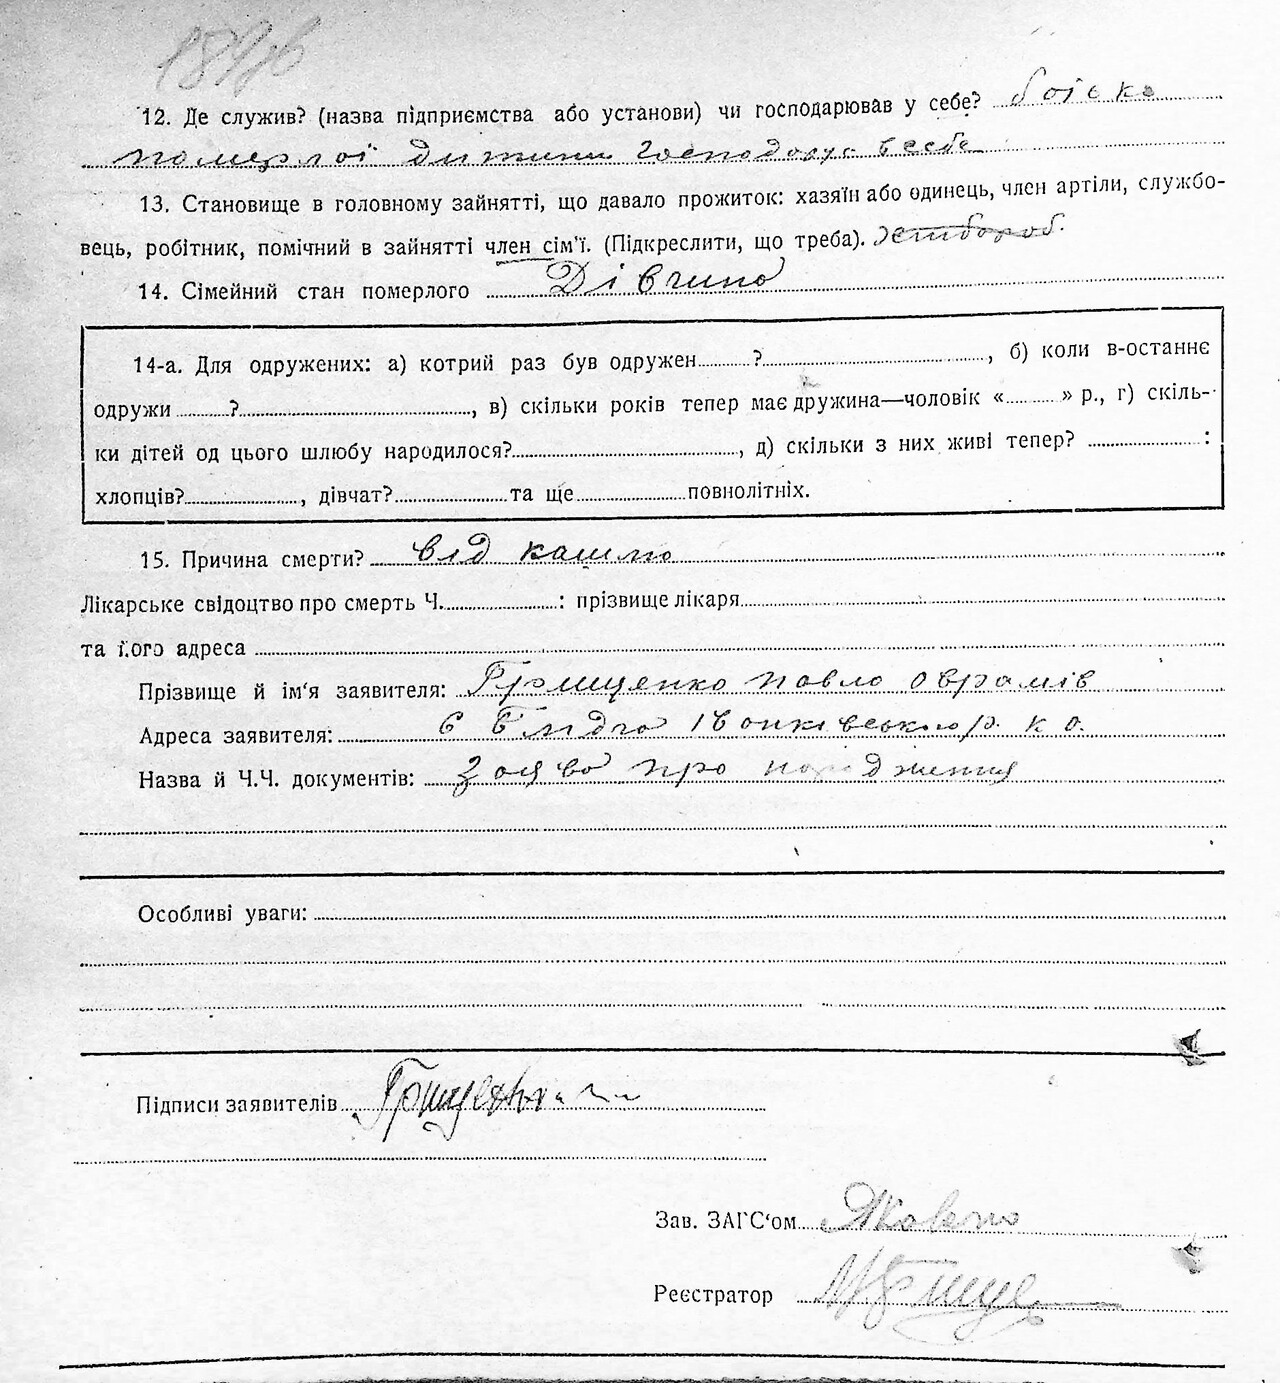 12. Де служив? (назва підприємства або установи) чи господарював у себе? батько
померлої дитини господарує в себе
13. Становище в головному зайнятті, що давало прожиток: хазяїн або одинець, член артіли, службо-
вець, робітник, помічний в зайнятті член сім'ї. (Підкреслити, що треба).
14. Сімейний стан померлого Дівчина
14-а. Для одружених: а) котрий раз був одружен ? , б) коли в-останнє
одружи ? , в) скільки років тепер має дружина—чоловік « » р., г) скіль-
ки дітей од цього шлюбу народилося? , д) скільки з них живі тепер? :
хлопців? , дівчат? та ще повнолітніх.
15. Причина смерти? від кашлю
Лікарське свідоцтво про смерть Ч. : прізвище лікаря
та його адреса
Прізвище й ім'я заявителя: Грищенко Павло Оврамів
Адреса заявителя: с
Назва й Ч.Ч. документів: заява про народження
Особливі уваги:
Підписи заявителів Грищенко
Зав. ЗАГС'ом
Реєстратор